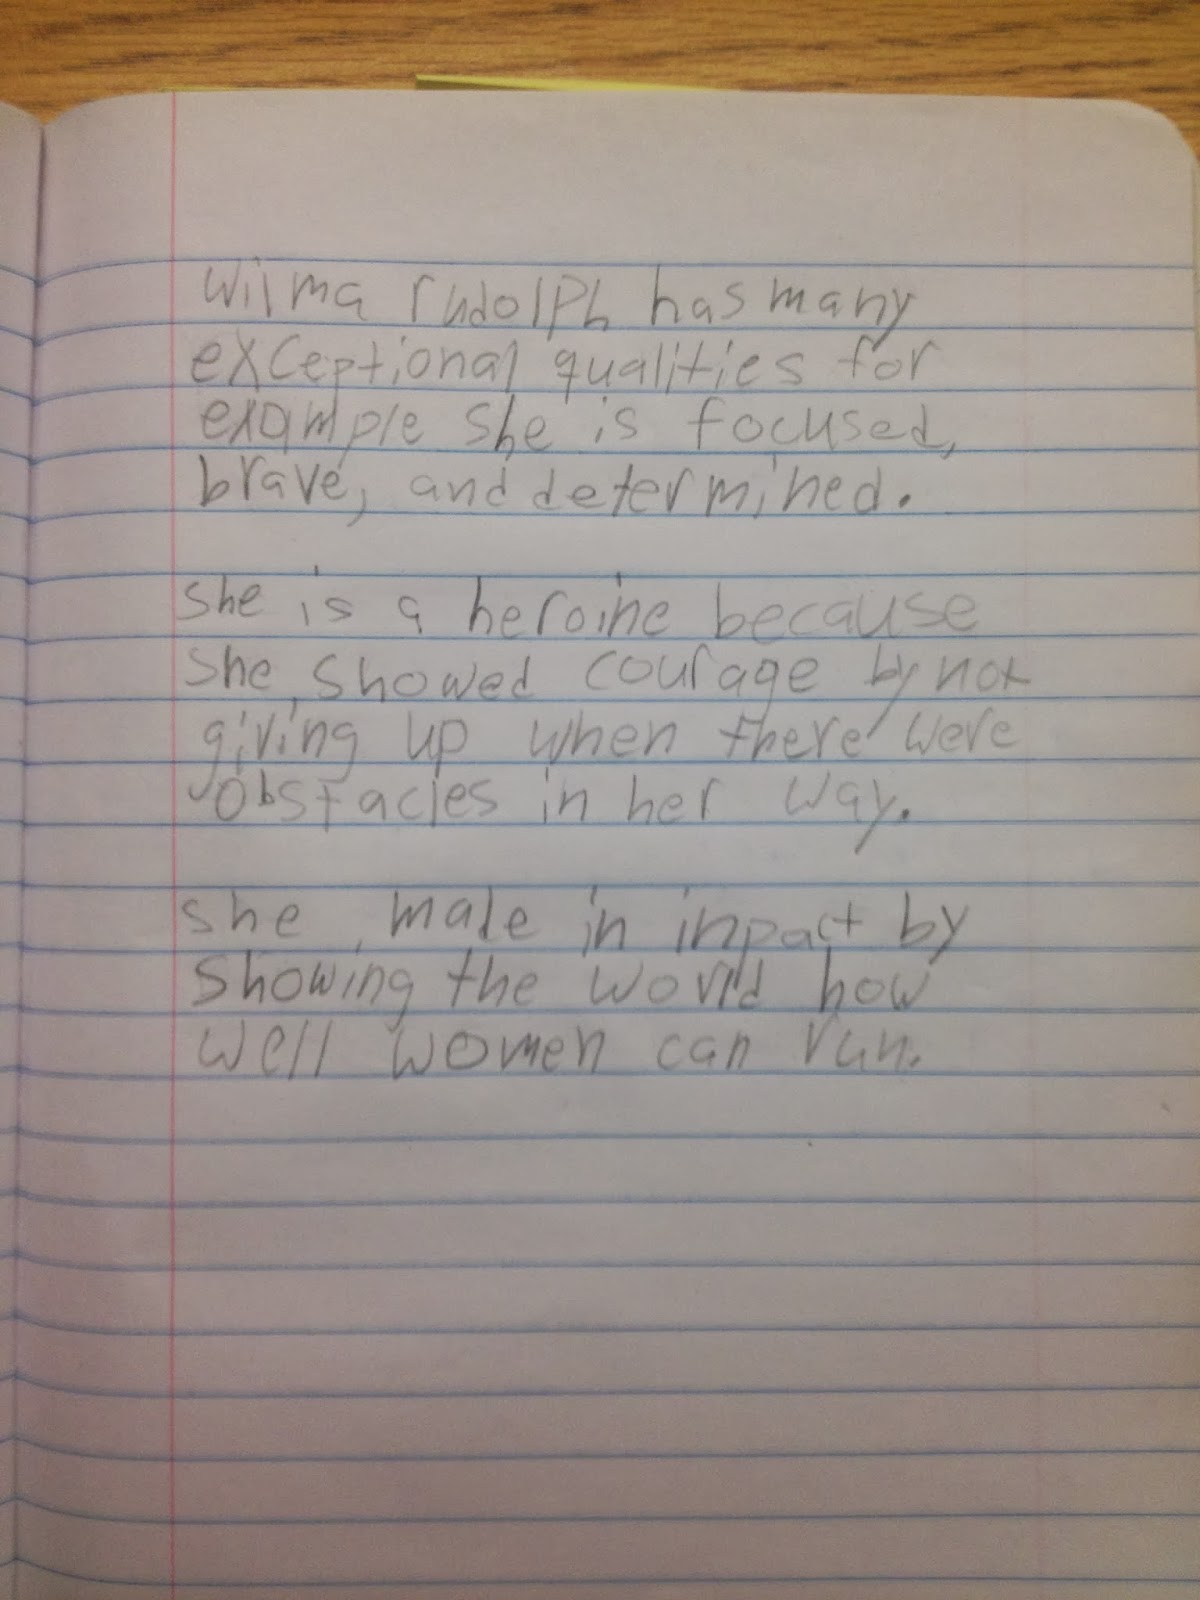 wilma rudolph has many
exceptional qualities for
example she is focused,
brave, and determined.
she is a heroine because
she showed courage by not
giving up when there were
obstacles in her way.
she made in inpact by
showing the world how
well women can run.